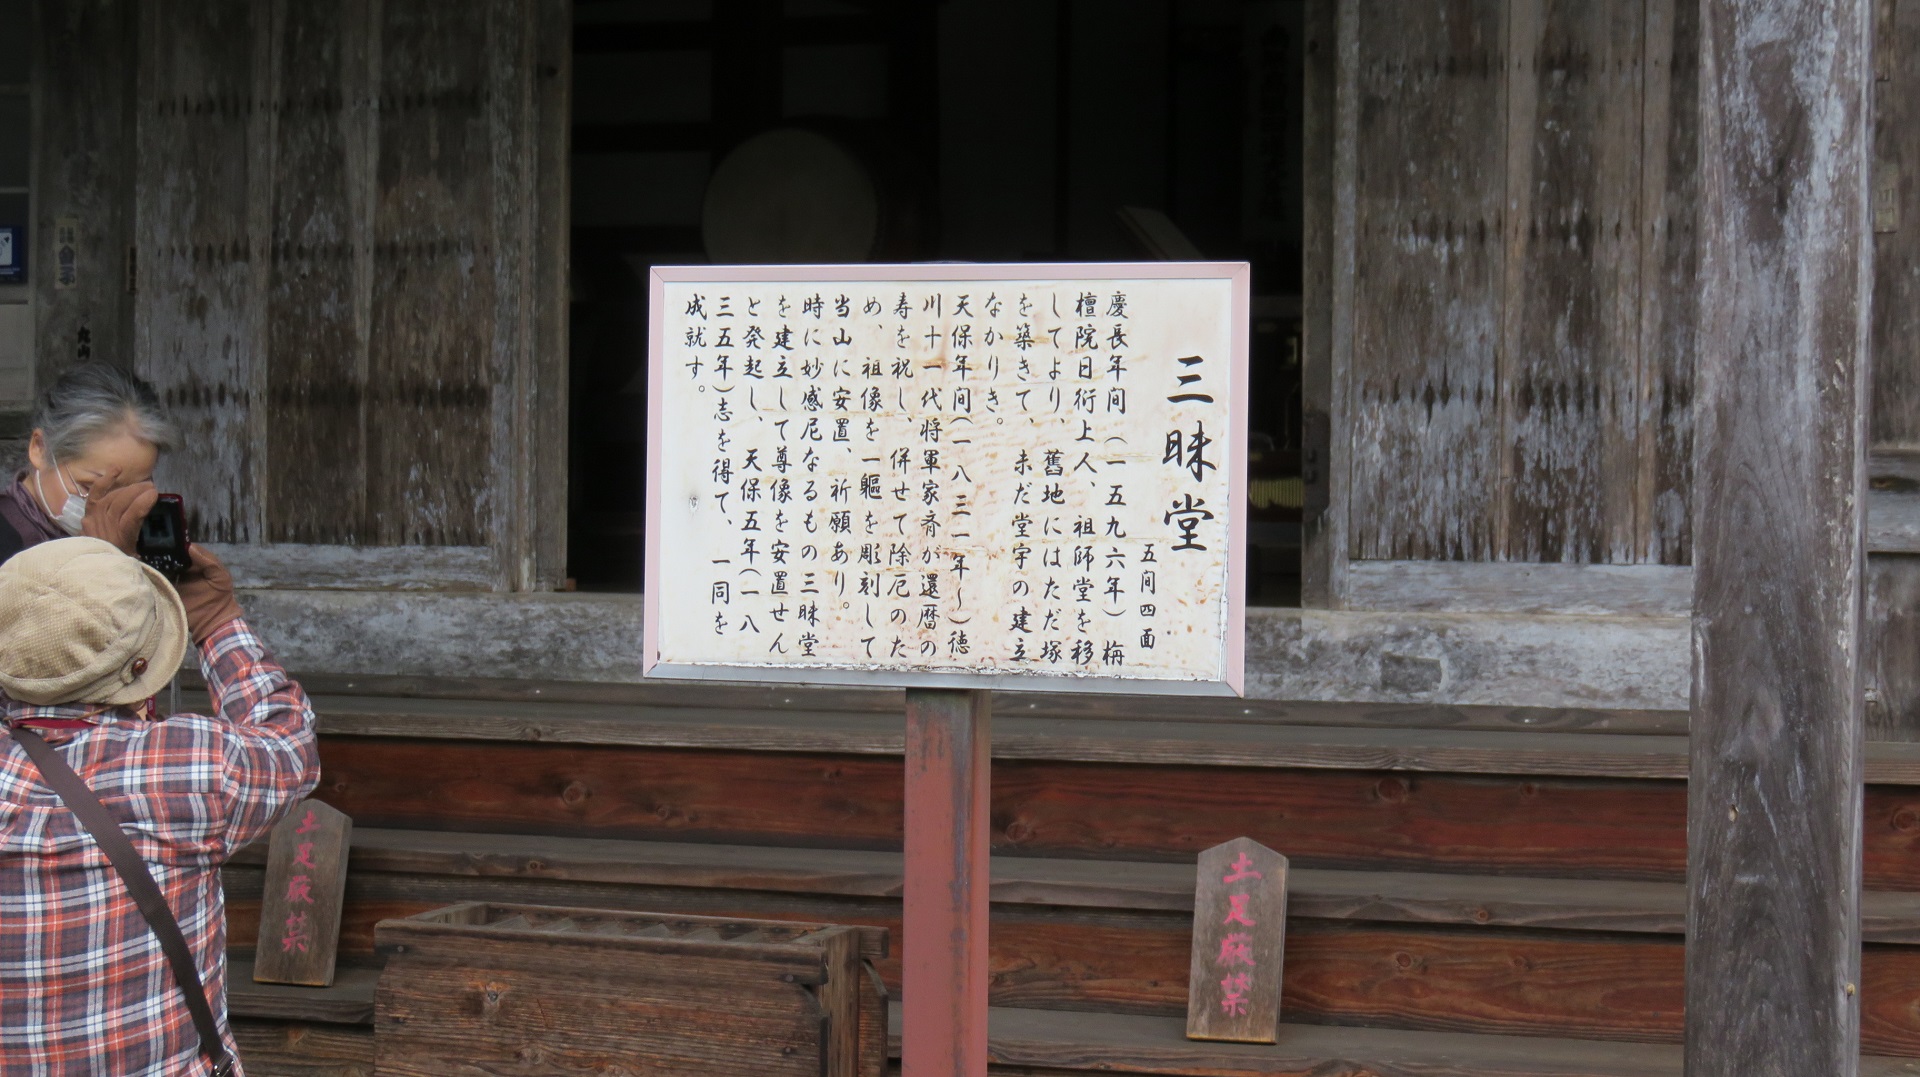 三昧堂
五间四面
慶長年间（一五九六年）梅
檀院日衍上人、祖師堂を移
してより、舊地にはただ塚
を築きて、未だ堂宇の建立
なかりき。
天保年间（一八三一年～）徳
川十一代将軍家斉が還暦の
寿を祝し、併せて除厄のた
め、祖像を一軀を彫刻して
当山に安置、祈願あり。
時に妙感尼なるもの三昧堂
を建立して尊像を安置せん
と発起し、天保五年（一八
三五年）志を得て、一同を
成就す。
土足厳禁
土足厳禁